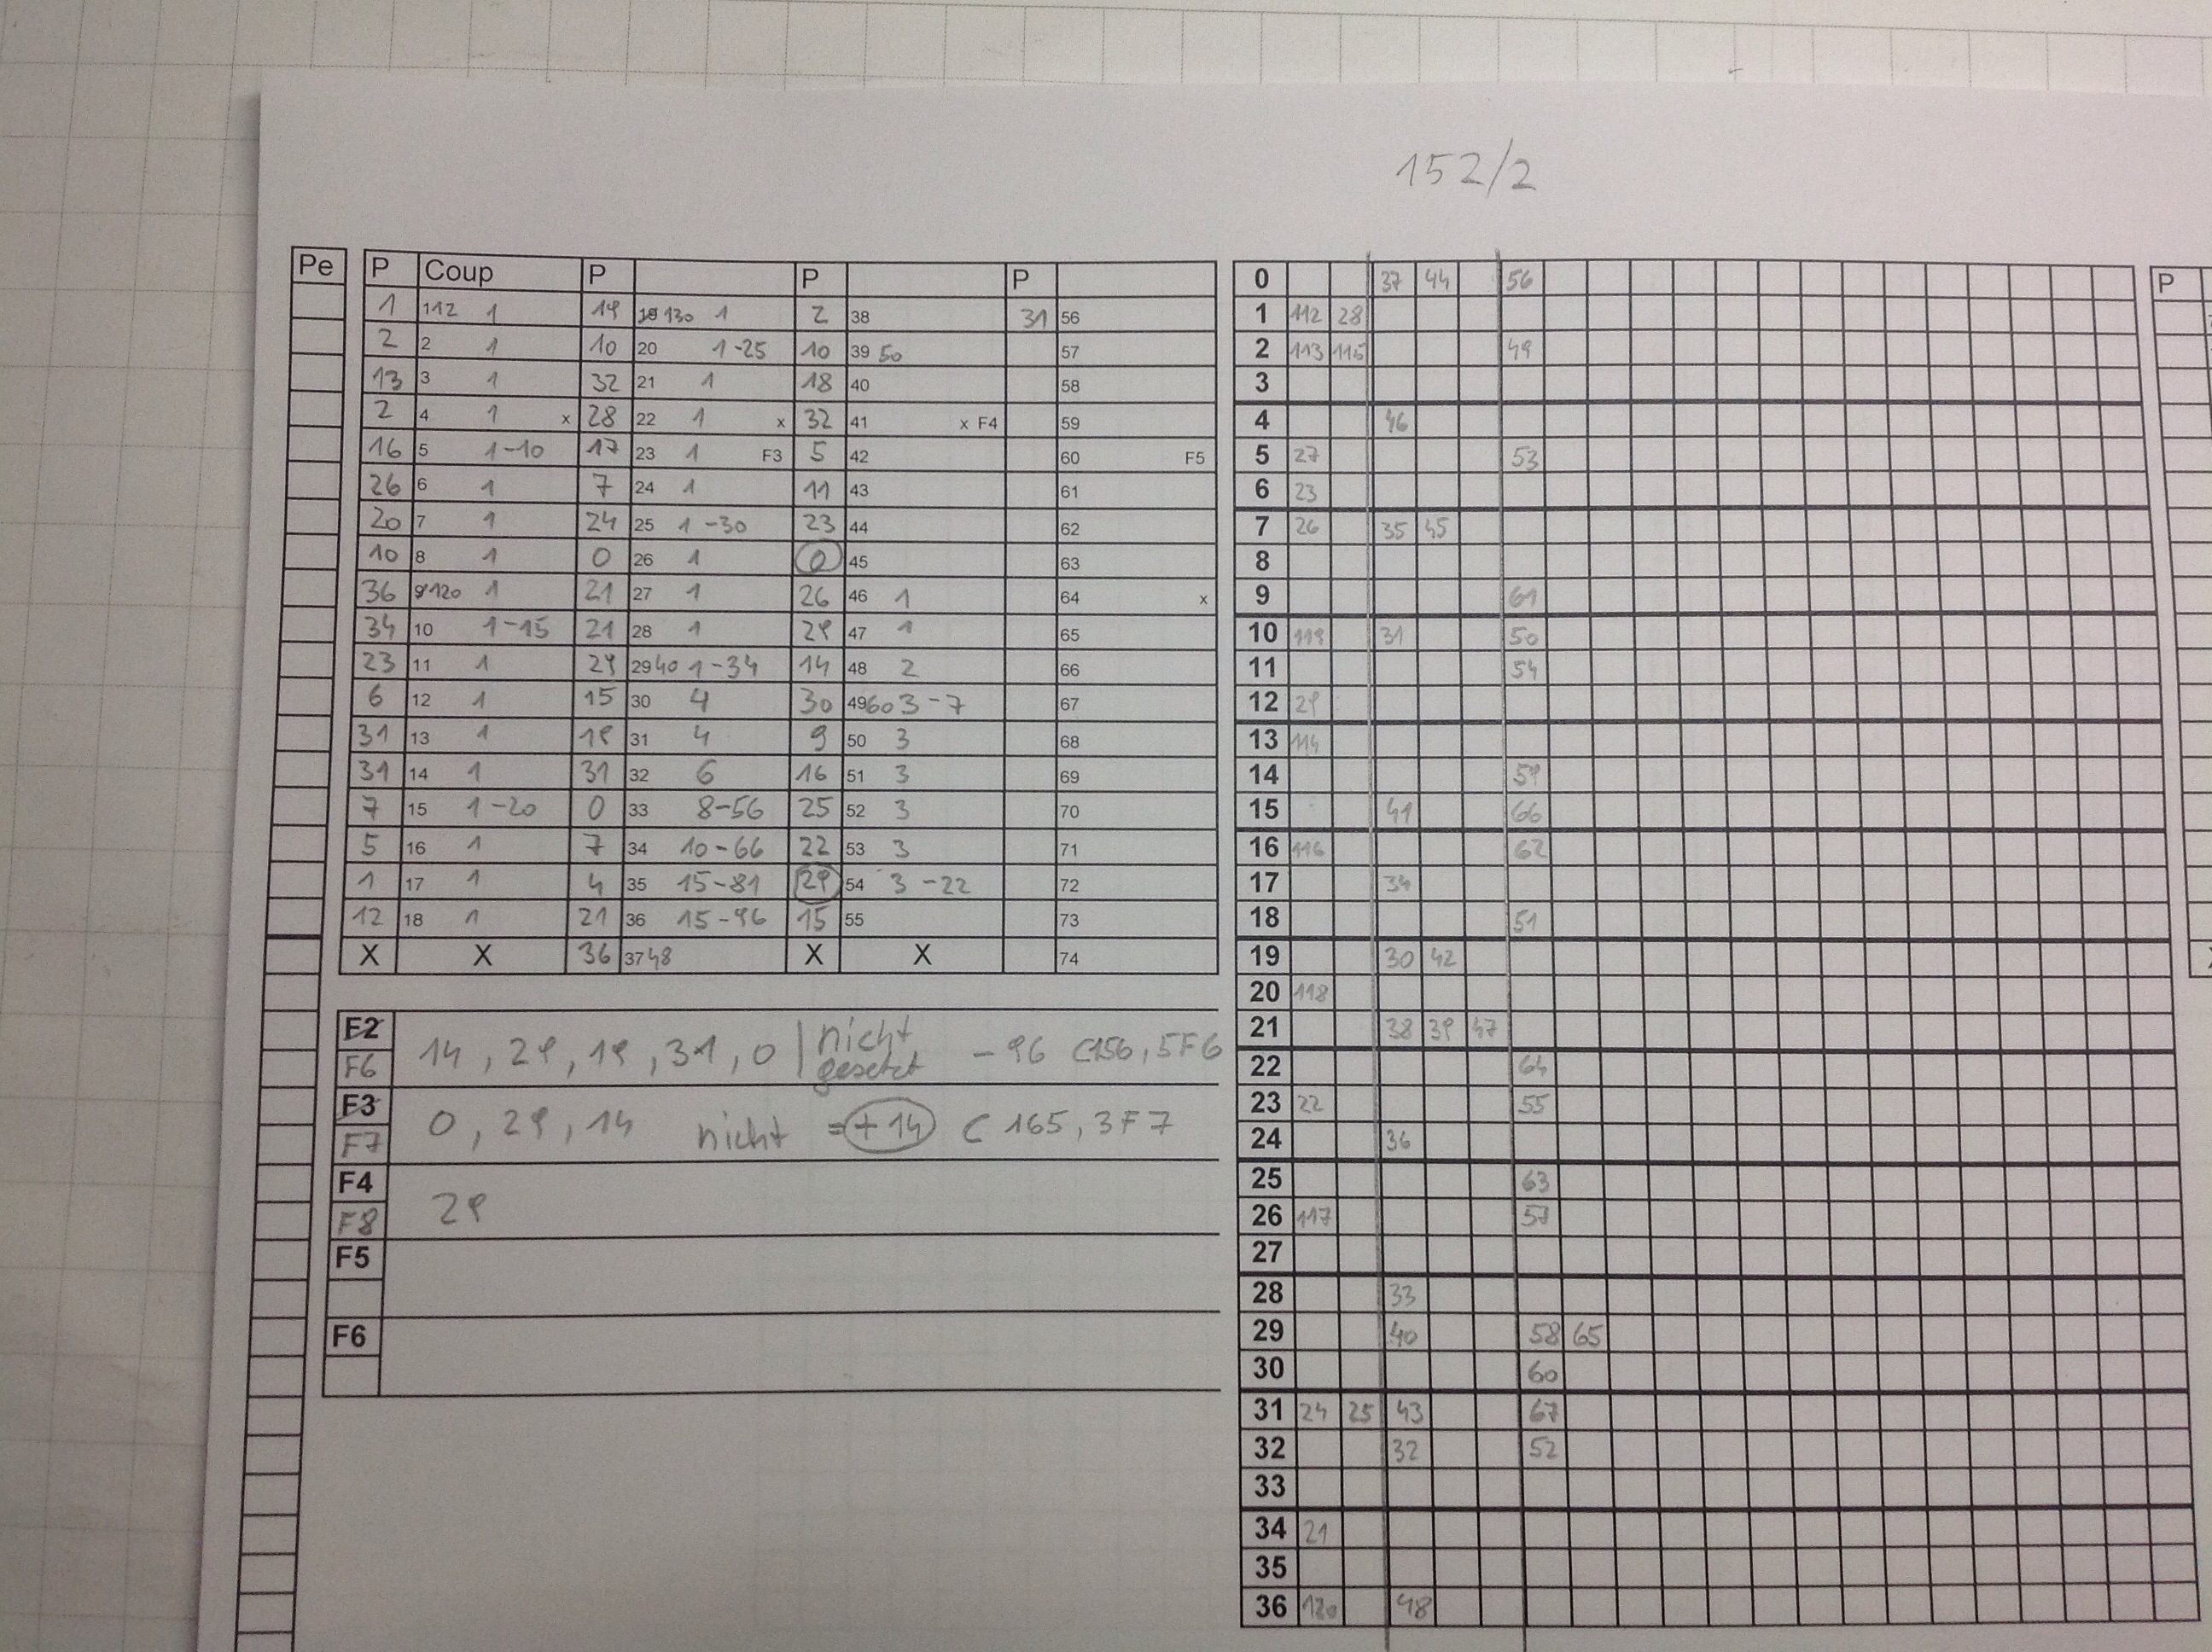 152/2
Pe P Coup P P P
1 112 1 19 19 130 1 2 38 31 56
2 2 1 10 20 1-25 10 39 50 57
13 3 1 32 21 1 18 40 58
2 4 1 x 28 22 1 x 32 41 x F4 59
16 5 1-10 17 23 1 F3 5 42 60 F5
26 6 1 7 24 1 11 43 61
20 7 1 24 25 1-30 23 44 62
10 8 1 0 26 1 0 45 63
36 9 120 1 21 27 1 26 46 1 64 x
34 10 1-15 21 28 1 29 47 1 65
23 11 1 29 29 40 1-34 14 48 2 66
6 12 1 15 30 4 30 49 60 3-7 67
31 13 1 19 31 4 9 50 3 68
31 14 1 31 32 6 16 51 3 69
7 15 1-20 0 33 8-56 25 52 3 70
5 16 1 7 34 10-66 22 53 3 71
1 17 1 4 35 15-81 29 54 3-22 72
12 18 1 21 36 15-96 15 55 73
X X 36 37 48 X X 74
F2
F6 14, 29, 19, 31, 0 | nicht gesetzt -96 C156, 5F6
F3
F7 0, 29, 14 nicht =+14 C 165, 3F7
F4
F8 29
F5
F6
0 37 44 56
1 112 28
2 113 115 49
3
4 46
5 27 53
6 23
7 26 35 45
8
9 61
10 119 31 50
11 54
12 29
13 114
14 59
15 41 66
16 116 62
17 34
18 51
19 30 42
20 118
21 38 39 47
22 64
23 22 55
24 36
25 63
26 117 57
27
28 33
29 40 58 65
30 60
31 24 25 43 67
32 32 52
33
34 21
35
36 120 48
P